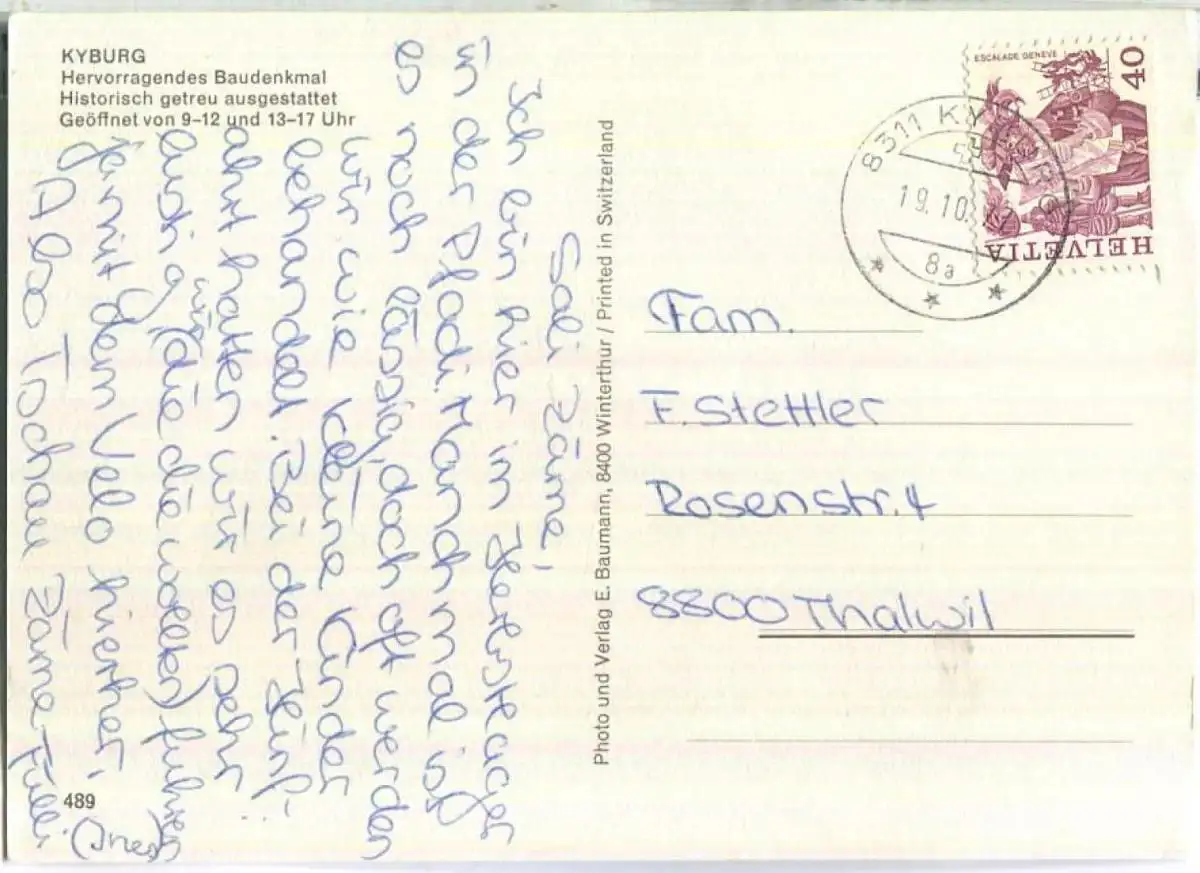 KYBURG
Hervorragendes Baudenkmal
Historisch getreu ausgestattet
Geöffnet von 9–12 und 13–17 Uhr
Sali zäme!
Ich bin hier im
in der Pfadi. Manchmal ist
es noch lässig, doch oft werden
wir wie kleine Kinder
behandelt. Bei der
ahrt hatten wir es sehr
lusti g (die die wollten) fuhren
wir
je mit dem Velo hierher.
Also Tschau zäme
(Ines)
489
Photo und Verlag E. Baumann, 8400 Winterthur / Printed in Switzerland
ESCALADE GENEVE
40
HELVETIA
8311 KYBURG
19.10.
8a
Fam.
F. Stettler
Rosenstr. 4
8800 Thalwil